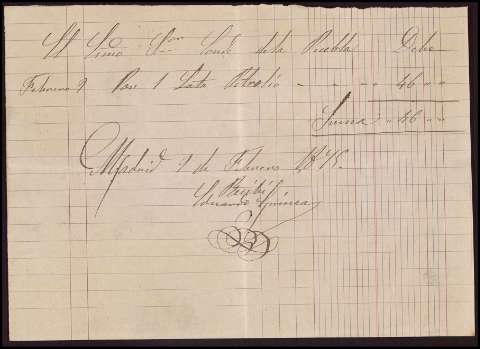 El Exmo Sor Conde de la Puebla Debe
Febrero 9 Por 1 Lata Petroleo - - - 46 " "
Suma " 46 " "
Madrid 9 de Febrero 1875.
Recibí
Eduardo